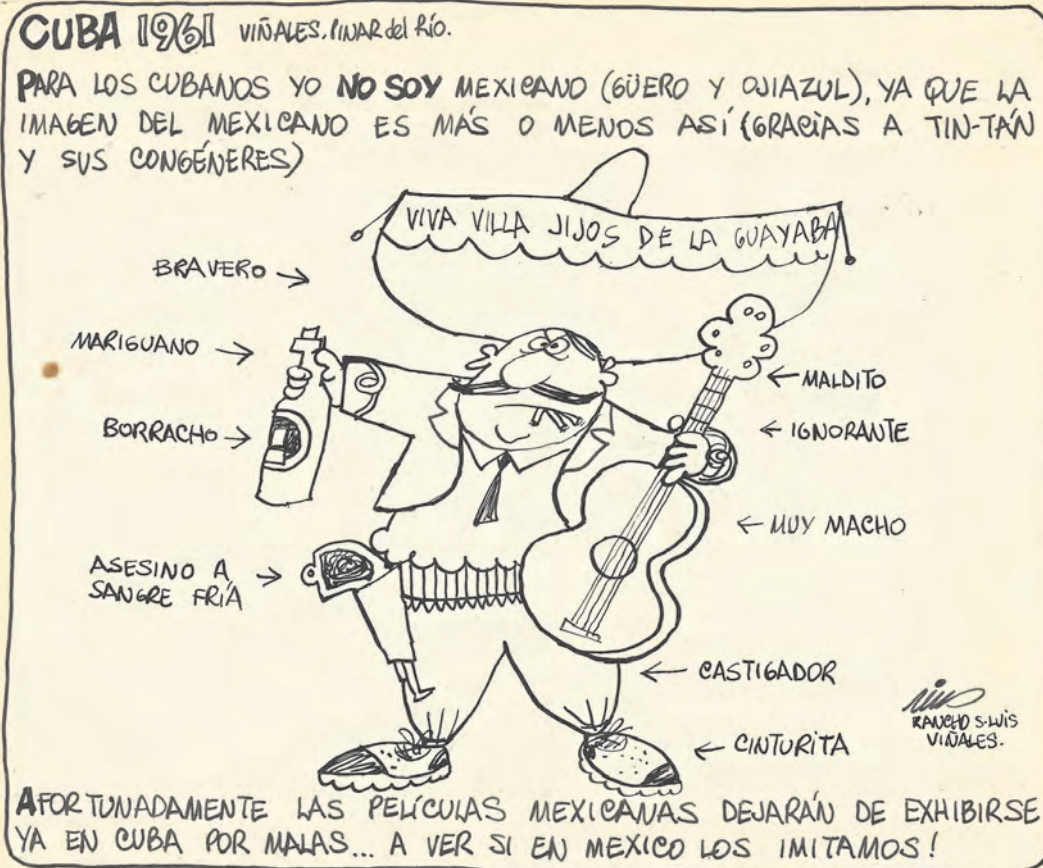 CUBA 1961 VIÑALES. PINAR del RÍO.
PARA LOS CUBANOS YO NO SOY MEXICANO (GÜERO Y OJIAZUL), YA QUE LA
IMAGEN DEL MEXICANO ES MÁS O MENOS ASÍ (GRACIAS A TIN-TÁN
Y SUS CONGÉNERES)
VIVA VILLA JIJOS DE LA GUAYABA
BRAVERO →
MARIGUANO →
BORRACHO →
ASESINO A →
SANGRE FRÍA
← MALDITO
← IGNORANTE
← MUY MACHO
← CASTIGADOR
← CINTURITA
rius
RANCHO S. LUIS
VIÑALES.
AFORTUNADAMENTE LAS PELÍCULAS MEXICANAS DEJARÁN DE EXHIBIRSE
YA EN CUBA POR MALAS... A VER SI EN MEXICO LOS IMITAMOS!